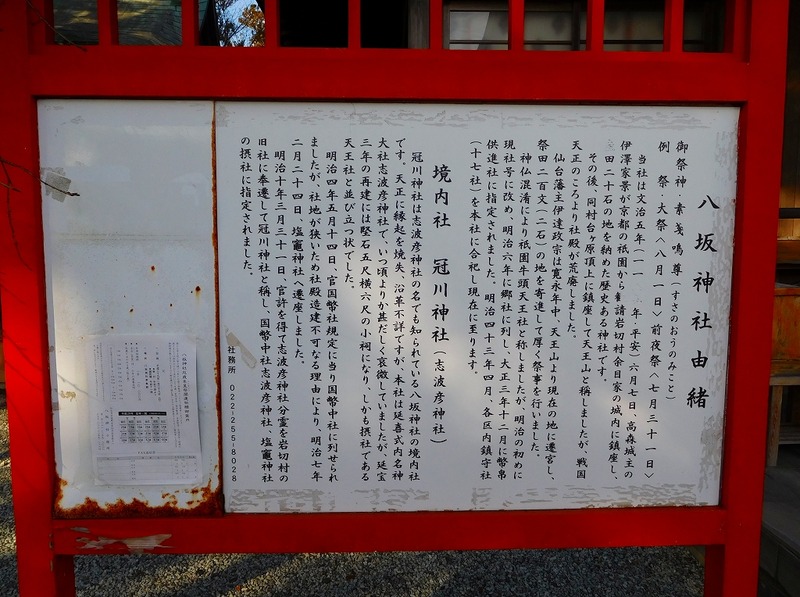 八坂神社由緒
御祭神・素戔嗚尊(すさのおうのみこと)
例祭・大祭〈八月一日〉前夜祭〈七月三十一日〉
当社は文治五年(一一 年・平安)六月七日、高森城主の
伊澤家景が京都の祇園から勧請岩切村余目家の城内に鎮座し、
田二十石の地を納めた歴史ある神社です。
その後、同村台ヶ原頂上に鎮座して天王山と称しましたが、戦国
天正のころより社殿が荒廃しました。
仙台藩主伊達政宗は寛永年中、天王山より現在の地に遷宮し、
祭田二百文(二石)の地を寄進して厚く祭事を行いました。
神仏混淆により祇園牛頭天王社と称しましたが、明治の初めに
現社号に改め、明治六年に郷社に列し、大正三年十二月に幣帛
供進社に指定されました。明治四十三年四月、各区内鎮守社
(十七社)を本社に合祀し現在に至ります。
境内社 冠川神社(志波彦神社)
冠川神社は志波彦神社の名でも知られている八坂神社の境内社
です。天正に縁起を焼失、沿革不詳ですが、本社は延喜式内名神
大社志波彦神社で、いつ頃よりか甚だしく哀微していましたが、延宝
三年の再建には堅石五尺横六尺の小祠になり、しかも摂社である
天王社と並び立つ状でした。
明治四年五月十四日、官国幣社規定に当り国幣中社に列せられ
ましたが、社地が狭いため社殿造建不可なる理由により、明治七年
二月二十四日、塩竈神社へ遷座しました。
明治十年三月三十一日、官許を得て志波彦神社分霊を岩切村の
旧社に奉遷して冠川神社と称し、国幣中社志波彦神社、塩竈神社
の摂社に指定されました。
社務所 022-255-8028